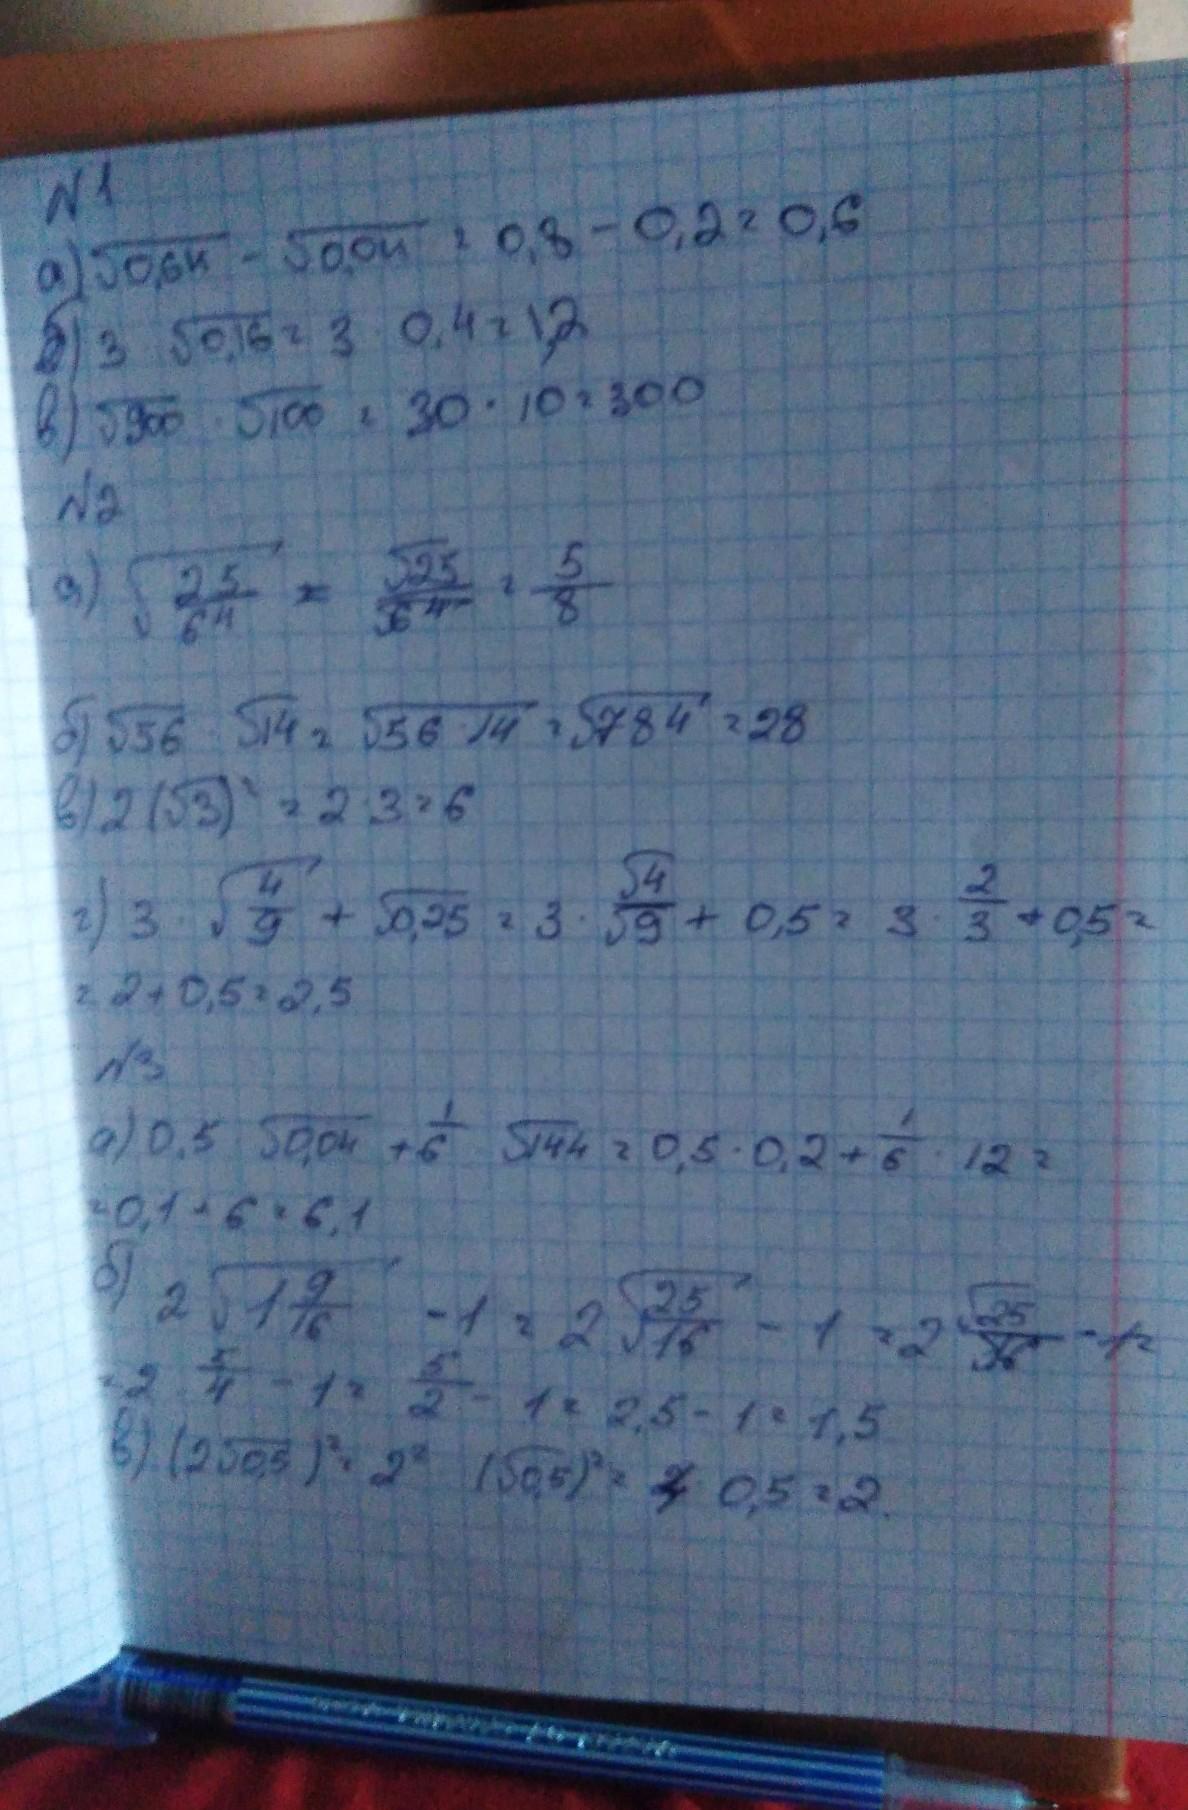 №1
а) √0,64 - √0,04 = 0,8 - 0,2 = 0,6
б) 3 √0,16 = 3 · 0,4 = 1,2
в) √900 · √100 = 30 · 10 = 300
№2
а) √(25/64) = √25/√64 = 5/8
б) √56 · √14 = √(56 · 14) = √784 = 28
в) 2(√3)² = 2 · 3 = 6
г) 3 · √(4/9) + √0,25 = 3 · √4/√9 + 0,5 = 3 · 2/3 + 0,5 =
= 2 + 0,5 = 2,5
№3
а) 0,5 √0,04 + 1/6 √144 = 0,5 · 0,2 + 1/6 · 12 =
= 0,1 + 6 = 6,1
б) 2√(1 9/16) - 1 = 2√(25/16) - 1 = 2 √25/√16 - 1 =
= 2 · 5/4 - 1 = 5/2 - 1 = 2,5 - 1 = 1,5
в) (2√0,5)² = 2² (√0,5)² = 4 · 0,5 = 2.